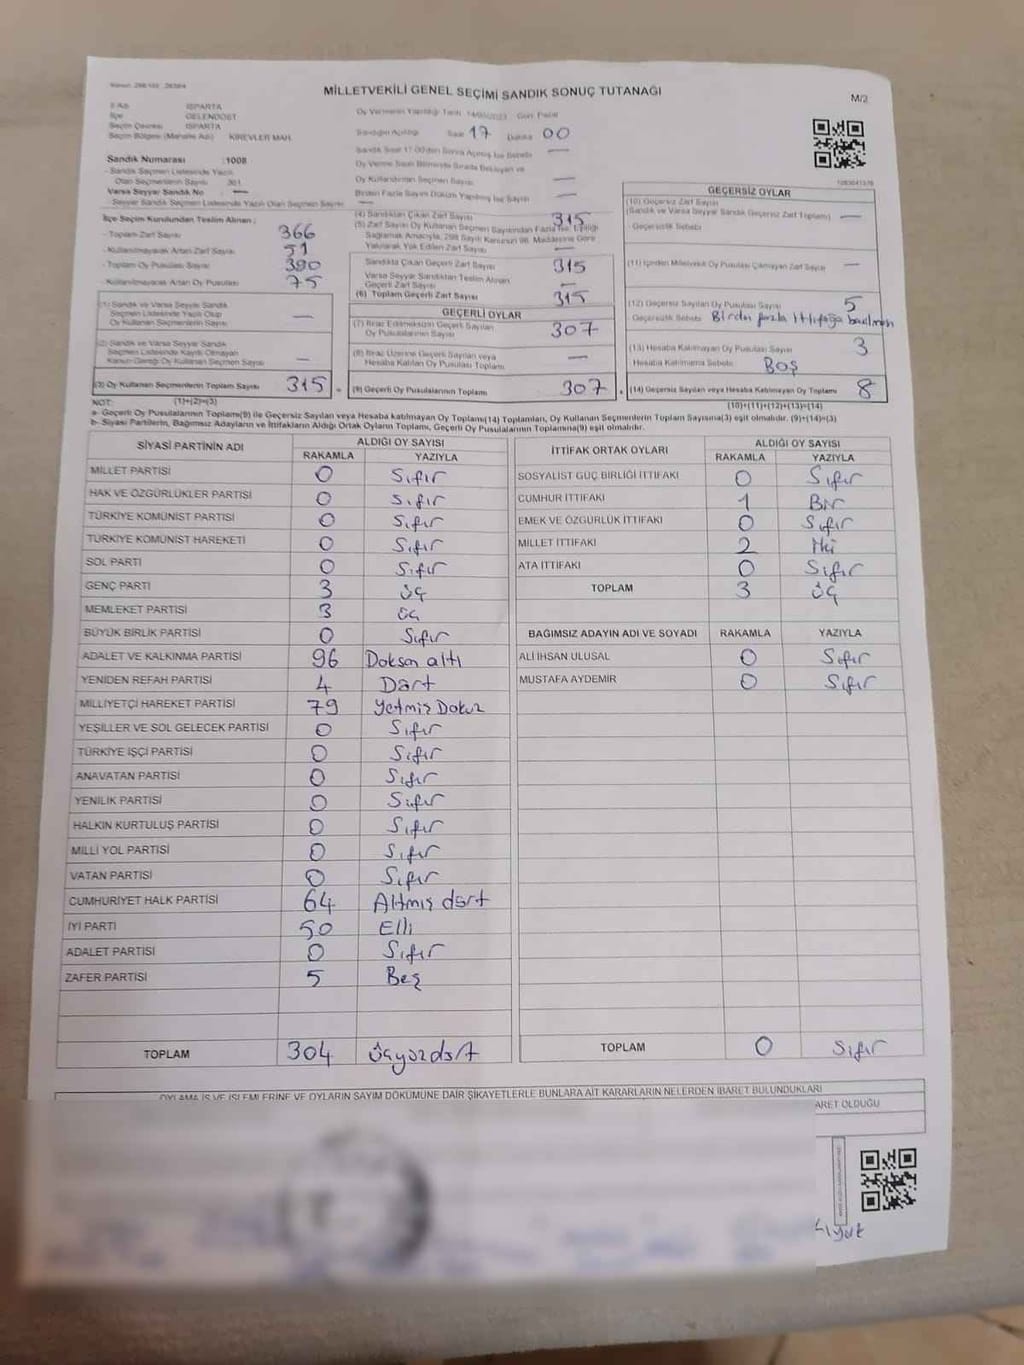 MİLLETVEKİLİ GENEL SEÇİMİ SANDIK SONUÇ TUTANAĞI
M/2
İl Adı ISPARTA
İlçe GELENDOST
Seçim Çevresi ISPARTA
Seçim Bölgesi (Mahalle Adı) KİREVLER MAH.
Sandık Numarası :1008
- Sandık Seçmen Listesinde Yazılı
Olan Seçmenlerin Sayısı
Varsa Seyyar Sandık No —
Seyyar Sandık Seçmen Listesinde Yazılı Olan Seçmen Sayısı —
İlçe Seçim Kurulundan Teslim Alınan :
- Toplam Zarf Sayısı 366
- Kullanılmayarak Artan Zarf Sayısı 51
- Toplam Oy Pusulası Sayısı 390
- Kullanılmayarak Artan Oy Pusulası 75
(1) Sandık ve Varsa Seyyar Sandık
Seçmen Listesinde Yazılı Olup
Oy Kullanan Seçmenlerin Sayısı —
(2) Sandık ve Varsa Seyyar Sandık
Seçmen Listesinde Kayıtlı Olmayan
Kanun Gereği Oy Kullanan Seçmen Sayısı —
(3) Oy Kullanan Seçmenlerin Toplam Sayısı 315
(1)+(2)=(3)
Oy Vermenin Yapıldığı Tarih 14/05/2023 Gün Pazar
Sandığın Açıldığı Saat 17 Dakika 00
Sandık Saat 17:00'den Sonra Açılmış İse Sebebi —
Oy Verme Saati Bitiminde Sırada Bekleyen ve
Oy Kullandırılan Seçmen Sayısı —
Birden Fazla Sayım Döküm Yapılmış İse Sayısı —
(4) Sandıktan Çıkan Zarf Sayısı 315
(5) Zarf Sayısı Oy Kullanan Seçmen Sayısından Fazla İse, Eşitliği
Sağlamak Amacıyla, 298 Sayılı Kanunun 98. Maddesine Göre
Yakılarak Yok Edilen Zarf Sayısı —
Sandıkta Çıkan Geçerli Zarf Sayısı 315
Varsa Seyyar Sandıktan Teslim Alınan
Geçerli Zarf Sayısı —
(6) Toplam Geçerli Zarf Sayısı 315
GEÇERLİ OYLAR
(7) İtiraz Edilmeksizin Geçerli Sayılan
Oy Pusulalarının Sayısı 307
(8) İtiraz Üzerine Geçerli Sayılan veya
Hesaba Katılan Oy Pusulası Toplamı —
(9) Geçerli Oy Pusulalarının Toplamı 307
GEÇERSİZ OYLAR
(10) Geçersiz Zarf Sayısı
(Sandık ve Varsa Seyyar Sandık Geçersiz Zarf Toplamı) —
- Geçersizlik Sebebi
(11) İçinden Milletvekili Oy Pusulası Çıkmayan Zarf Sayısı —
(12) Geçersiz Sayılan Oy Pusulası Sayısı 5
- Geçersizlik Sebebi Birden fazla ittifağa basılması
(13) Hesaba Katılmayan Oy Pusulası Sayısı 3
Hesaba Katılmama Sebebi Boş
(14) Geçersiz Sayılan veya Hesaba Katılmayan Oy Toplamı 8
(10)+(11)+(12)+(13)=(14)
NOT:
a- Geçerli Oy Pusulaları Toplamı(9) ile Geçersiz Sayılan veya Hesaba katılmayan Oy Toplamı(14) Toplamları, Oy Kullanan Seçmenlerin Toplam Sayısına(3) eşit olmalıdır. (9)+(14)=(3)
b- Siyasi Partilerin, Bağımsız Adayların ve İttifakların Aldığı Ortak Oyların Toplamı, Geçerli Oy Pusulalarının Toplamına(9) eşit olmalıdır.
SİYASİ PARTİNİN ADI ALDIĞI OY SAYISI
RAKAMLA YAZIYLA
MİLLET PARTİSİ 0 Sıfır
HAK VE ÖZGÜRLÜKLER PARTİSİ 0 Sıfır
TÜRKİYE KOMÜNİST PARTİSİ 0 Sıfır
TÜRKİYE KOMÜNİST HAREKETİ 0 Sıfır
SOL PARTİ 0 Sıfır
GENÇ PARTİ 3 üç
MEMLEKET PARTİSİ 3 üç
BÜYÜK BİRLİK PARTİSİ 0 Sıfır
ADALET VE KALKINMA PARTİSİ 96 Doksan altı
YENİDEN REFAH PARTİSİ 4 Dört
MİLLİYETÇİ HAREKET PARTİSİ 79 Yetmiş Dokuz
YEŞİLLER VE SOL GELECEK PARTİSİ 0 Sıfır
TÜRKİYE İŞÇİ PARTİSİ 0 Sıfır
ANAVATAN PARTİSİ 0 Sıfır
YENİLİK PARTİSİ 0 Sıfır
HALKIN KURTULUŞ PARTİSİ 0 Sıfır
MİLLİ YOL PARTİSİ 0 Sıfır
VATAN PARTİSİ 0 Sıfır
CUMHURİYET HALK PARTİSİ 64 Altmış dört
İYİ PARTİ 50 Elli
ADALET PARTİSİ 0 Sıfır
ZAFER PARTİSİ 5 Beş
TOPLAM 304 üçyüzdört
İTTİFAK ORTAK OYLARI ALDIĞI OY SAYISI
RAKAMLA YAZIYLA
SOSYALİST GÜÇ BİRLİĞİ İTTİFAKI 0 Sıfır
CUMHUR İTTİFAKI 1 Bir
EMEK VE ÖZGÜRLÜK İTTİFAKI 0 Sıfır
MİLLET İTTİFAKI 2 İki
ATA İTTİFAKI 0 Sıfır
TOPLAM 3 üç
BAĞIMSIZ ADAYIN ADI VE SOYADI RAKAMLA YAZIYLA
ALİ İHSAN ULUSAL 0 Sıfır
MUSTAFA AYDEMİR 0 Sıfır
TOPLAM 0 Sıfır
OYLAMA İŞ VE İŞLEMLERİNE VE OYLARIN SAYIM DÖKÜMÜNE DAİR ŞİKAYETLERLE BUNLARA AİT KARARLARIN NELERDEN İBARET BULUNDUKLARI
ARET OLDUĞU